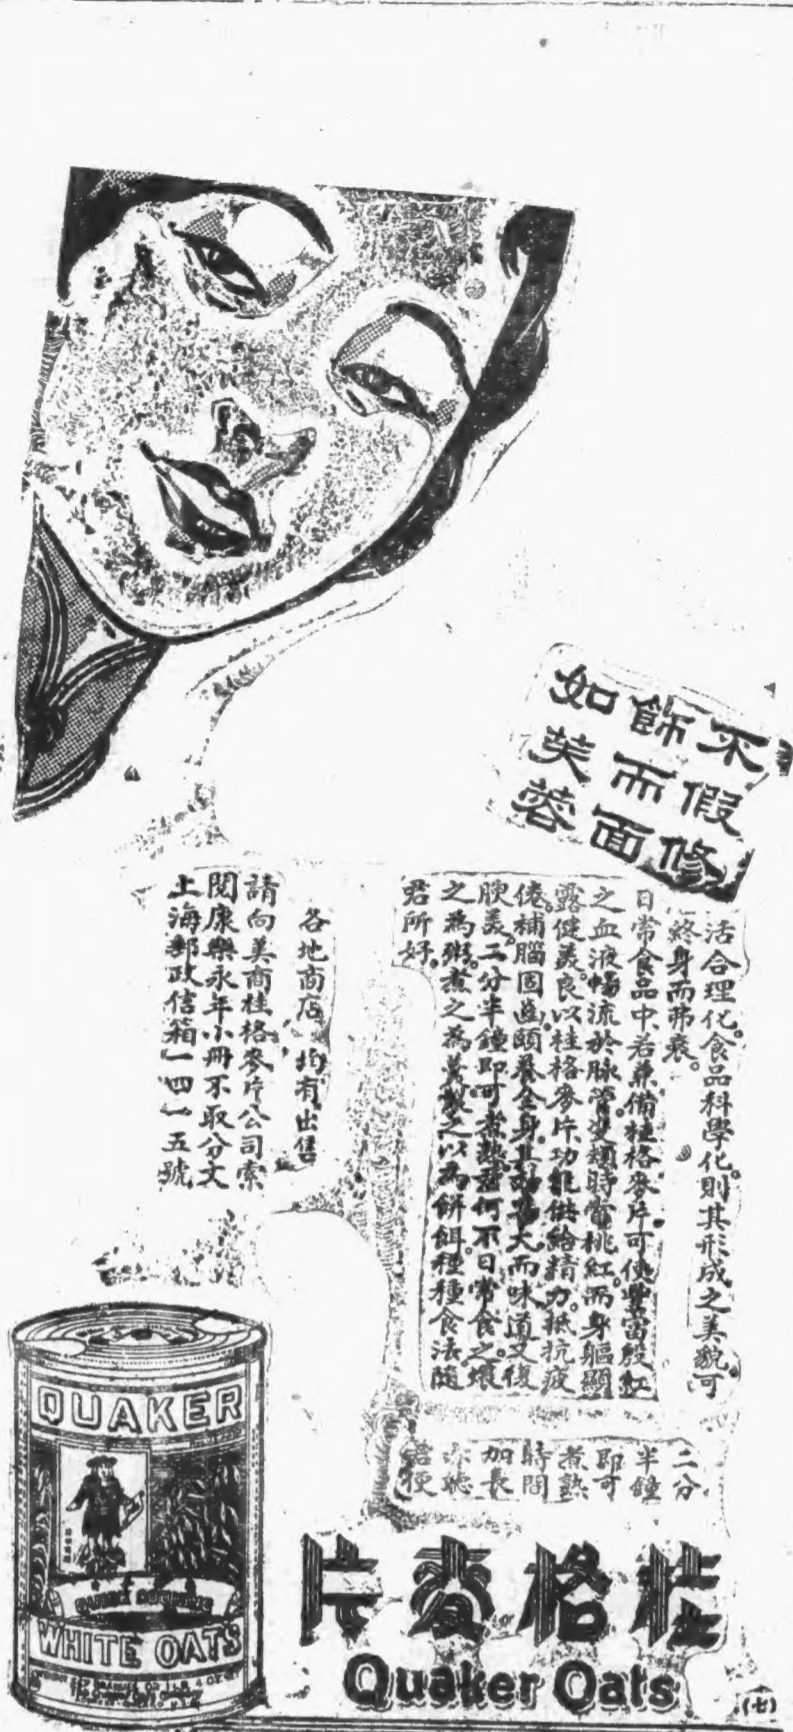 不假修
飾而面
如芙蓉
活合理化。食品科學化。則其形成之美貌可
終身而弗衰。
日常食品中。若兼備桂格麥片。可使豐富殷紅
之血液。暢流於脉管。雙頰時常桃紅。而身軀顯
露健美。良以桂格麥片。功能供給精力。抵抗疲
倦。補腦固齒。頤養全身。其功大而味道又復
腴美。二分半鐘即可煮熟。何不日常食之。
之為粥。煮之為羹。製之以為餅餌。種種食法。隨
君所好。
各地商店 均有出售
請向美商桂格麥片公司索
閱康樂永年小冊不取分文
上海郵政信箱一四一五號
二分
半鐘
即可
煮熟
時間
加長
亦聽
君便
桂格麥片
Quaker Oats
(七)
QUAKER
WHITE OATS